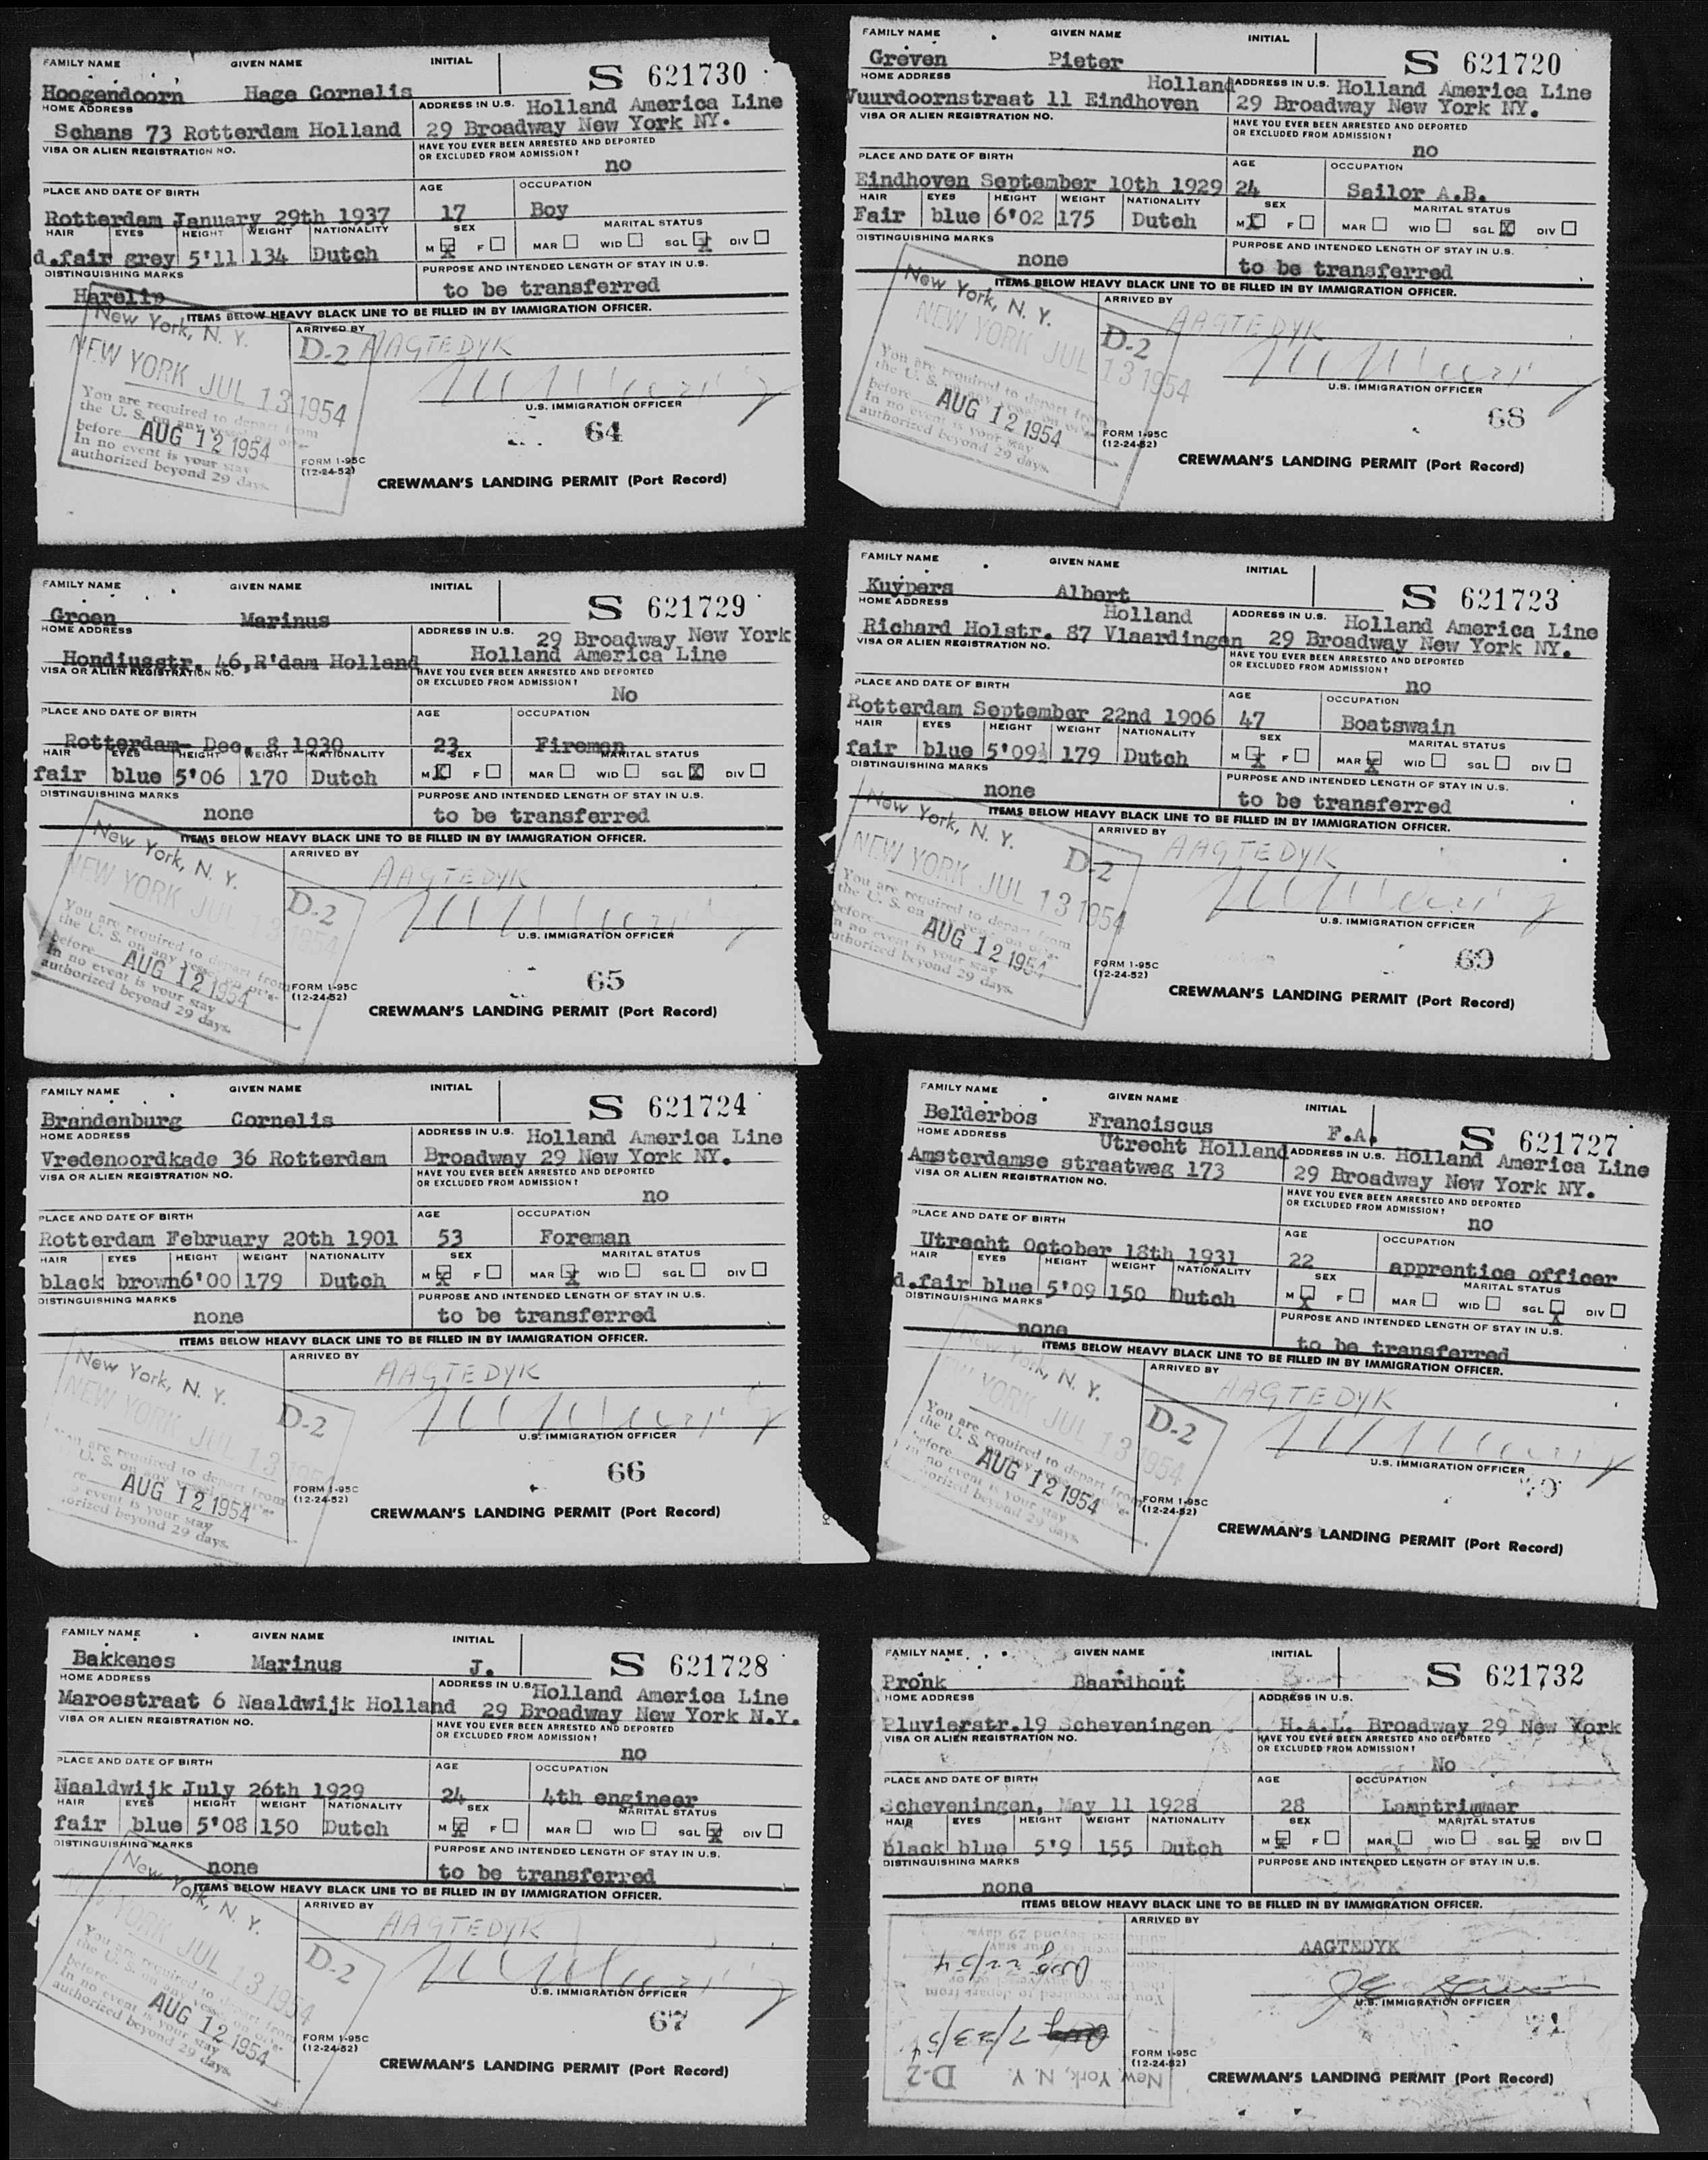 FAMILY NAME GIVEN NAME INITIAL
S 621730
Hoogendoorn Hage Cornelis
HOME ADDRESS ADDRESS IN U.S. Holland America Line
Schans 73 Rotterdam Holland 29 Broadway New York NY.
VISA OR ALIEN REGISTRATION NO. HAVE YOU EVER BEEN ARRESTED AND DEPORTED
OR EXCLUDED FROM ADMISSION?
no
PLACE AND DATE OF BIRTH AGE OCCUPATION
Rotterdam January 29th 1937 17 Boy
HAIR EYES HEIGHT WEIGHT NATIONALITY SEX MARITAL STATUS
d.fair grey 5'11 134 Dutch M X F MAR WID SGL X DIV
DISTINGUISHING MARKS PURPOSE AND INTENDED LENGTH OF STAY IN U.S.
Harelip to be transferred
ITEMS BELOW HEAVY BLACK LINE TO BE FILLED IN BY IMMIGRATION OFFICER.
New York, N. Y. ARRIVED BY
D-2 AAGTEDYK
NEW YORK JUL 13 1954
You are required to depart from
the U. S. on any vessel on or
U.S. IMMIGRATION OFFICER
before AUG 12 1954
64
In no event is your stay
authorized beyond 29 days.
FORM I-95C
(12-24-52)
CREWMAN'S LANDING PERMIT (Port Record)
FAMILY NAME GIVEN NAME INITIAL
S 621729
Groen Marinus
HOME ADDRESS ADDRESS IN U.S. 29 Broadway New York
Hondiusstr. 46,R'dam Holland Holland America Line
VISA OR ALIEN REGISTRATION NO. HAVE YOU EVER BEEN ARRESTED AND DEPORTED
OR EXCLUDED FROM ADMISSION?
No
PLACE AND DATE OF BIRTH AGE OCCUPATION
Rotterdam- Dec. 8 1930 23 Fireman
HAIR EYES HEIGHT WEIGHT NATIONALITY SEX MARITAL STATUS
fair blue 5'06 170 Dutch M X F MAR WID SGL X DIV
DISTINGUISHING MARKS PURPOSE AND INTENDED LENGTH OF STAY IN U.S.
none to be transferred
ITEMS BELOW HEAVY BLACK LINE TO BE FILLED IN BY IMMIGRATION OFFICER.
New York, N. Y. ARRIVED BY
AAGTEDYK
NEW YORK JUL 13 1954 D-2
You are required to depart from
the U. S. on any vessel on or
U.S. IMMIGRATION OFFICER
before AUG 12 1954
65
In no event is your stay
authorized beyond 29 days.
FORM I-95C
(12-24-52)
CREWMAN'S LANDING PERMIT (Port Record)
FAMILY NAME GIVEN NAME INITIAL
S 621724
Brandenburg Cornelis
HOME ADDRESS ADDRESS IN U.S. Holland America Line
Vredenoordkade 36 Rotterdam Broadway 29 New York NY.
VISA OR ALIEN REGISTRATION NO. HAVE YOU EVER BEEN ARRESTED AND DEPORTED
OR EXCLUDED FROM ADMISSION?
no
PLACE AND DATE OF BIRTH AGE OCCUPATION
Rotterdam February 20th 1901 53 Foreman
HAIR EYES HEIGHT WEIGHT NATIONALITY SEX MARITAL STATUS
black brown 6'00 179 Dutch M X F MAR X WID SGL DIV
DISTINGUISHING MARKS PURPOSE AND INTENDED LENGTH OF STAY IN U.S.
none to be transferred
ITEMS BELOW HEAVY BLACK LINE TO BE FILLED IN BY IMMIGRATION OFFICER.
New York, N. Y. ARRIVED BY
AAGTEDYK
NEW YORK JUL 13 1954 D-2
You are required to depart from
U. S. on any vessel on or
U.S. IMMIGRATION OFFICER
AUG 12 1954
66
event is your stay
authorized beyond 29 days.
FORM I-95C
(12-24-52)
CREWMAN'S LANDING PERMIT (Port Record)
FAMILY NAME GIVEN NAME INITIAL
S 621728
Bakkenes Marinus J.
HOME ADDRESS ADDRESS IN U.S. Holland America Line
Maroestraat 6 Naaldwijk Holland 29 Broadway New York N.Y.
VISA OR ALIEN REGISTRATION NO. HAVE YOU EVER BEEN ARRESTED AND DEPORTED
OR EXCLUDED FROM ADMISSION?
no
PLACE AND DATE OF BIRTH AGE OCCUPATION
Naaldwijk July 26th 1929 24 4th engineer
HAIR EYES HEIGHT WEIGHT NATIONALITY SEX MARITAL STATUS
fair blue 5'08 150 Dutch M X F MAR WID SGL X DIV
DISTINGUISHING MARKS PURPOSE AND INTENDED LENGTH OF STAY IN U.S.
none to be transferred
ITEMS BELOW HEAVY BLACK LINE TO BE FILLED IN BY IMMIGRATION OFFICER.
New York, N. Y. ARRIVED BY
AAGTEDYK
YORK JUL 13 1954 D-2
You are required to depart from
the U. S. on any vessel on or
U.S. IMMIGRATION OFFICER
before AUG 12 1954
67
In no event is your stay
authorized beyond 29 days.
FORM I-95C
(12-24-52)
CREWMAN'S LANDING PERMIT (Port Record)
FAMILY NAME GIVEN NAME INITIAL
S 621720
Greven Pieter
HOME ADDRESS Holland ADDRESS IN U.S. Holland America Line
Vuurdoornstraat 11 Eindhoven 29 Broadway New York NY.
VISA OR ALIEN REGISTRATION NO. HAVE YOU EVER BEEN ARRESTED AND DEPORTED
OR EXCLUDED FROM ADMISSION?
no
PLACE AND DATE OF BIRTH AGE OCCUPATION
Eindhoven September 10th 1929 24 Sailor A.B.
HAIR EYES HEIGHT WEIGHT NATIONALITY SEX MARITAL STATUS
Fair blue 6'02 175 Dutch M X F MAR WID SGL X DIV
DISTINGUISHING MARKS PURPOSE AND INTENDED LENGTH OF STAY IN U.S.
none to be transferred
ITEMS BELOW HEAVY BLACK LINE TO BE FILLED IN BY IMMIGRATION OFFICER.
New York, N. Y. ARRIVED BY
AAGTEDYK
NEW YORK JUL 13 1954 D-2
You are required to depart from
the U. S. on any vessel on or
U.S. IMMIGRATION OFFICER
before AUG 12 1954
68
In no event is your stay
authorized beyond 29 days.
FORM I-95C
(12-24-52)
CREWMAN'S LANDING PERMIT (Port Record)
FAMILY NAME GIVEN NAME INITIAL
S 621723
Kuypers Albert
HOME ADDRESS Holland ADDRESS IN U.S. Holland America Line
Richard Holstr. 87 Vlaardingen 29 Broadway New York NY.
VISA OR ALIEN REGISTRATION NO. HAVE YOU EVER BEEN ARRESTED AND DEPORTED
OR EXCLUDED FROM ADMISSION?
no
PLACE AND DATE OF BIRTH AGE OCCUPATION
Rotterdam September 22nd 1906 47 Boatswain
HAIR EYES HEIGHT WEIGHT NATIONALITY SEX MARITAL STATUS
fair blue 5'09½ 179 Dutch M X F MAR X WID SGL DIV
DISTINGUISHING MARKS PURPOSE AND INTENDED LENGTH OF STAY IN U.S.
none to be transferred
ITEMS BELOW HEAVY BLACK LINE TO BE FILLED IN BY IMMIGRATION OFFICER.
New York, N. Y. ARRIVED BY
AAGTEDYK
NEW YORK JUL 13 1954 D-2
You are required to depart from
the U. S. on any vessel on or
U.S. IMMIGRATION OFFICER
before AUG 12 1954
69
In no event is your stay
authorized beyond 29 days.
FORM I-95C
(12-24-52)
CREWMAN'S LANDING PERMIT (Port Record)
FAMILY NAME GIVEN NAME INITIAL
S 621727
Belderbos Franciscus F.A.
HOME ADDRESS Utrecht Holland ADDRESS IN U.S. Holland America Line
Amsterdamse straatweg 173 29 Broadway New York NY.
VISA OR ALIEN REGISTRATION NO. HAVE YOU EVER BEEN ARRESTED AND DEPORTED
OR EXCLUDED FROM ADMISSION?
no
PLACE AND DATE OF BIRTH AGE OCCUPATION
Utrecht October 18th 1931 22 apprentice officer
HAIR EYES HEIGHT WEIGHT NATIONALITY SEX MARITAL STATUS
d.fair blue 5'09 150 Dutch M X F MAR WID SGL X DIV
DISTINGUISHING MARKS PURPOSE AND INTENDED LENGTH OF STAY IN U.S.
none to be transferred
ITEMS BELOW HEAVY BLACK LINE TO BE FILLED IN BY IMMIGRATION OFFICER.
New York, N. Y. ARRIVED BY
AAGTEDYK
YORK JUL 13 1954 D-2
You are required to depart from
the U. S. on any vessel on or
U.S. IMMIGRATION OFFICER
before AUG 12 1954
70
In no event is your stay
authorized beyond 29 days.
FORM I-95C
(12-24-52)
CREWMAN'S LANDING PERMIT (Port Record)
FAMILY NAME GIVEN NAME INITIAL
S 621732
Pronk Baardhout
HOME ADDRESS ADDRESS IN U.S.
Pluvierstr.19 Scheveningen H.A.L. Broadway 29 New York
VISA OR ALIEN REGISTRATION NO. HAVE YOU EVER BEEN ARRESTED AND DEPORTED
OR EXCLUDED FROM ADMISSION?
No
PLACE AND DATE OF BIRTH AGE OCCUPATION
Scheveningen, May 11 1928 28 Lamptrimmer
HAIR EYES HEIGHT WEIGHT NATIONALITY SEX MARITAL STATUS
black blue 5'9 155 Dutch M X F MAR WID SGL X DIV
DISTINGUISHING MARKS PURPOSE AND INTENDED LENGTH OF STAY IN U.S.
none
ITEMS BELOW HEAVY BLACK LINE TO BE FILLED IN BY IMMIGRATION OFFICER.
ARRIVED BY
AAGTEDYK
U.S. IMMIGRATION OFFICER
71
New York, N. Y. D-2
7/23/54
You are required to depart from
Aug 22/54
authorized beyond 29 days
FORM I-95C
(12-24-52)
CREWMAN'S LANDING PERMIT (Port Record)